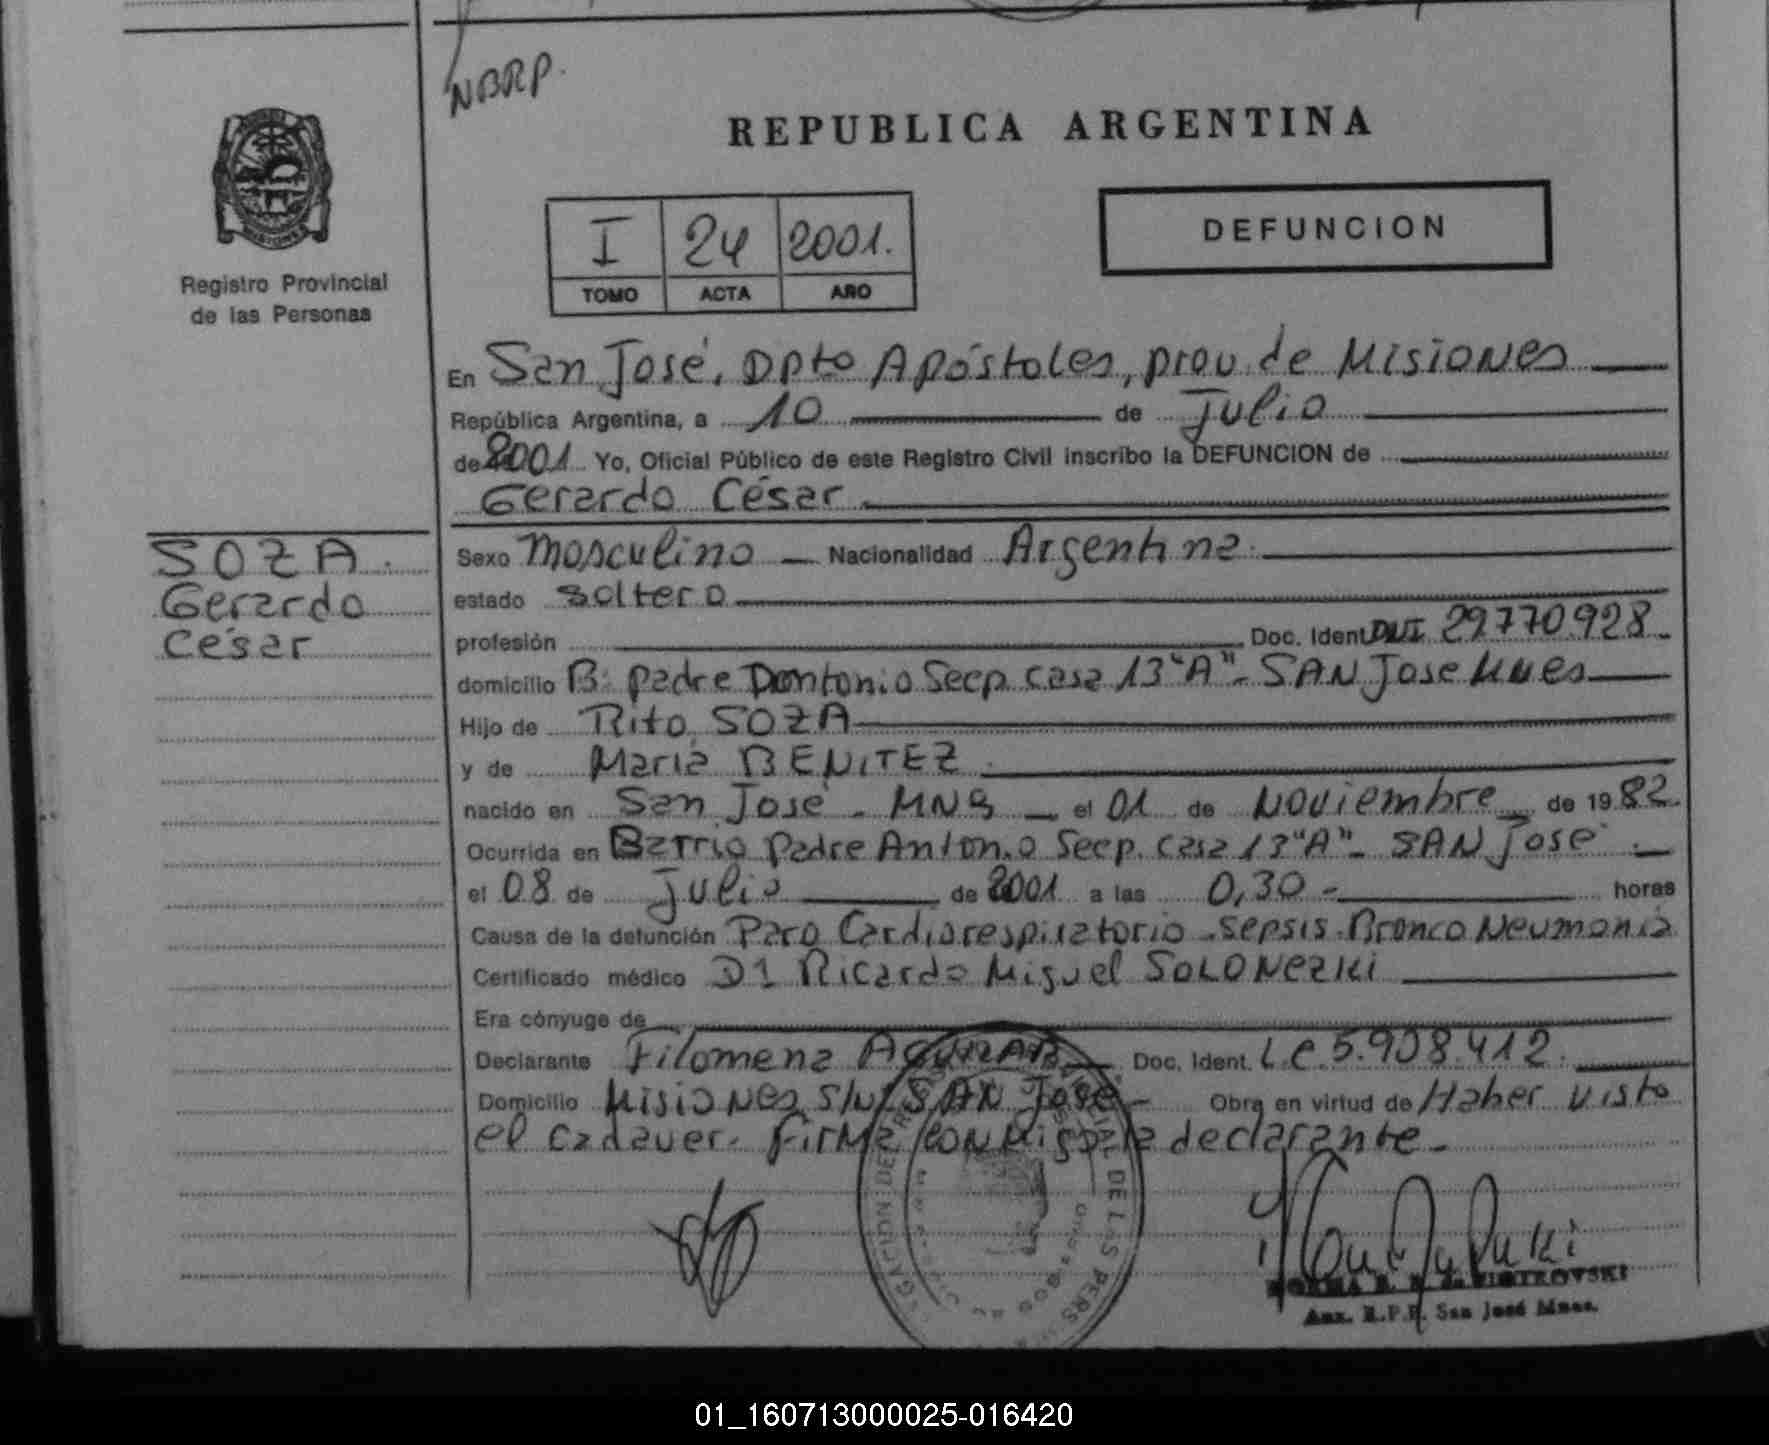 NBRP.
REPUBLICA ARGENTINA
I 24 2001.
TOMO ACTA AÑO
DEFUNCION
MISIONES
Registro Provincial
de las Personas
En San José, Dpto Apóstoles, prov. de Misiones
República Argentina, a 10 de Julio
de 2001 Yo, Oficial Público de este Registro Civil inscribo la DEFUNCION de
Gerardo César
SOZA.
Gerardo
César
Sexo Masculino Nacionalidad Argentina
estado soltero
profesión Doc. Ident. DNI 29770928
domicilio B: Padre Dontonio Seep casa 13 "A" - SAN Jose Mnes
Hijo de Rito SOZA
y de María BENITEZ
nacido en San José - MNS el 01 de Noviembre de 1982.
Ocurrida en Barrio Padre Antonio Seep. casa 13 "A" - SAN José
el 08 de Julio de 2001 a las 0,30 - horas
Causa de la defunción Paro Cardiorespiratorio - sepsis. Bronco Neumonia
Certificado médico Dr Ricardo Miguel SOLONEZKI
Era cónyuge de
Declarante Filomena Doc. Ident. L.C 5.908.412.
Domicilio Misiones S/N SAN José - Obra en virtud de Haber visto
el cadaver. Firma conmigo la declarante.
DE LAS PERS
NORMA PIOTROVSKI
Aux. R.P.P. San José Mnes.
01_160713000025-016420